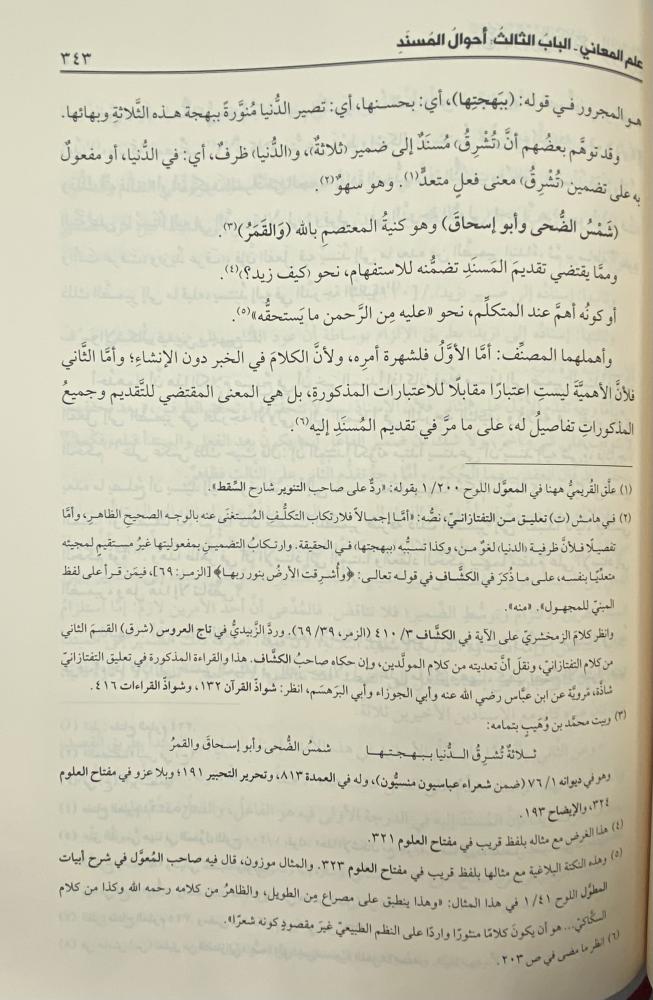 علم المعاني - البابُ الثالثُ: أحوالُ المُسنَدِ
٣٤٣
هو المجرور في قوله: (ببَهجتِها)، أي: بحسنها، أي: تصير الدُّنيا مُنوَّرةً ببهجة هذه الثَّلاثةِ وبهائها.
وقد توهَّم بعضُهم أنَّ (تُشْرِقُ) مُسنَدٌ إلى ضمير (ثلاثةٌ)، و(الدُّنيا) ظرفٌ، أي: في الدُّنيا، أو مفعولٌ
به على تضمين (تُشْرِقُ) معنى فعلٍ متعدٍّ(١). وهو سهوٌ(٢).
(شَمْسُ الضُّحى وأبو إسحاقَ) وهو كنيةُ المعتصمِ بالله (وَالقَمَرُ)(٣).
وممَّا يقتضي تقديمَ المَسنَدِ تضمُّنه للاستفهامِ، نحو (كيف زيد؟)(٤).
أو كونُه أهمَّ عند المتكلِّم، نحو «عليه مِن الرَّحمن ما يَستحقُّه»(٥).
وأهملهما المصنِّف: أمَّا الأوَّلُ فلشهرة أمرِه، ولأنَّ الكلامَ في الخبر دون الإنشاءِ؛ وأمَّا الثَّاني
فلأنَّ الأهميَّةَ ليستِ اعتبارًا مقابلًا للاعتبارات المذكورةِ، بل هي المعنى المقتضي للتَّقديم وجميعُ
المذكوراتِ تفاصيلُ له، على ما مرَّ في تقديم المُسنَدِ إليه(٦).
(١) علَّق القُريميُّ ههنا في المعوَّل اللوح ٢٠٠/ ١ بقوله: «ردٌّ على صاحب التنوير شارح السِّقط».
(٢) في هامش (ت) تعليق من التفتازانيّ، نصُّه: «أمَّا إجمالًا فلارتكاب التكلُّف المُستغنَى عنه بالوجه الصحيح الظاهرِ، وأمَّا
تفصيلًا فلأنَّ ظرفية (الدنيا) لغوٌ من، وكذا تسبُّبه (ببهجتها) في الحقيقة. وارتكابُ التضمينِ بمفعوليتها غيرُ مستقيمٍ لمجيئه
متعدِّيًا بنفسه، على ما ذُكرَ في الكشَّاف في قوله تعالى: ﴿وأُشرقت الأرضُ بنور ربها﴾ [الزمر: ٦٩]، فيمَن قرأ على لفظ
المبنيّ للمجهول». «منه».
وانظر كلامَ الزمخشريّ على الآية في الكشَّاف ٣/ ٤١٠ (الزمر، ٣٩/ ٦٩). وردَّ الزَّبيديُّ في تاج العروس (شرق) القسمَ الثاني
من كلام التفتازانيّ، ونقل أنَّ تعديته من كلام المولَّدين، وإن حكاه صاحبُ الكشَّاف. هذا والقراءة المذكورة في تعليق التفتازانيّ
شاذّة، مَرويَّة عن ابن عبَّاس رضي الله عنه وأبي الجوزاء وأبي البَرهسَم، انظر: شواذّ القرآن ١٣٢، وشواذّ القراءات ٤١٦.
(٣) وبيت محمَّد بن وُهَيبٍ بتمامه:
ثـلاثةٌ تُشرِقُ الـدُّنيا بـبـهجتـهـا شمسُ الضُّحى وأبو إسحاقَ والقمرُ
وهو في ديوانه ١/ ٧٦ (ضمن شعراء عباسيون منسيُّون)، وله في العمدة ٨١٣، وتحرير التحبير ١٩١؛ وبلا عزو في مفتاح العلوم
٣٢٤، والإيضاح ١٩٣.
(٤) هذا الغرض مع مثاله بلفظ قريب في مفتاح العلوم ٣٢١.
(٥) وهذه النكتة البلاغية مع مثالها بلفظ قريب في مفتاح العلوم ٣٢٣. والمثال موزون، قال فيه صاحب المُعوَّل في شرح أبيات
المطوَّل اللوح ٤١/ ١ في هذا المثال: «وهذا ينطبق على مصراع مِن الطويل، والظاهرُ من كلامه رحمه الله وكذا من كلام
السكَّاكيّ... هو أن يكونَ كلامًا منثورًا واردًا على النظم الطبيعيّ غيرَ مقصودٍ كونه شعرًا».
(٦) انظر ما مضى في ص ٢٠٣.